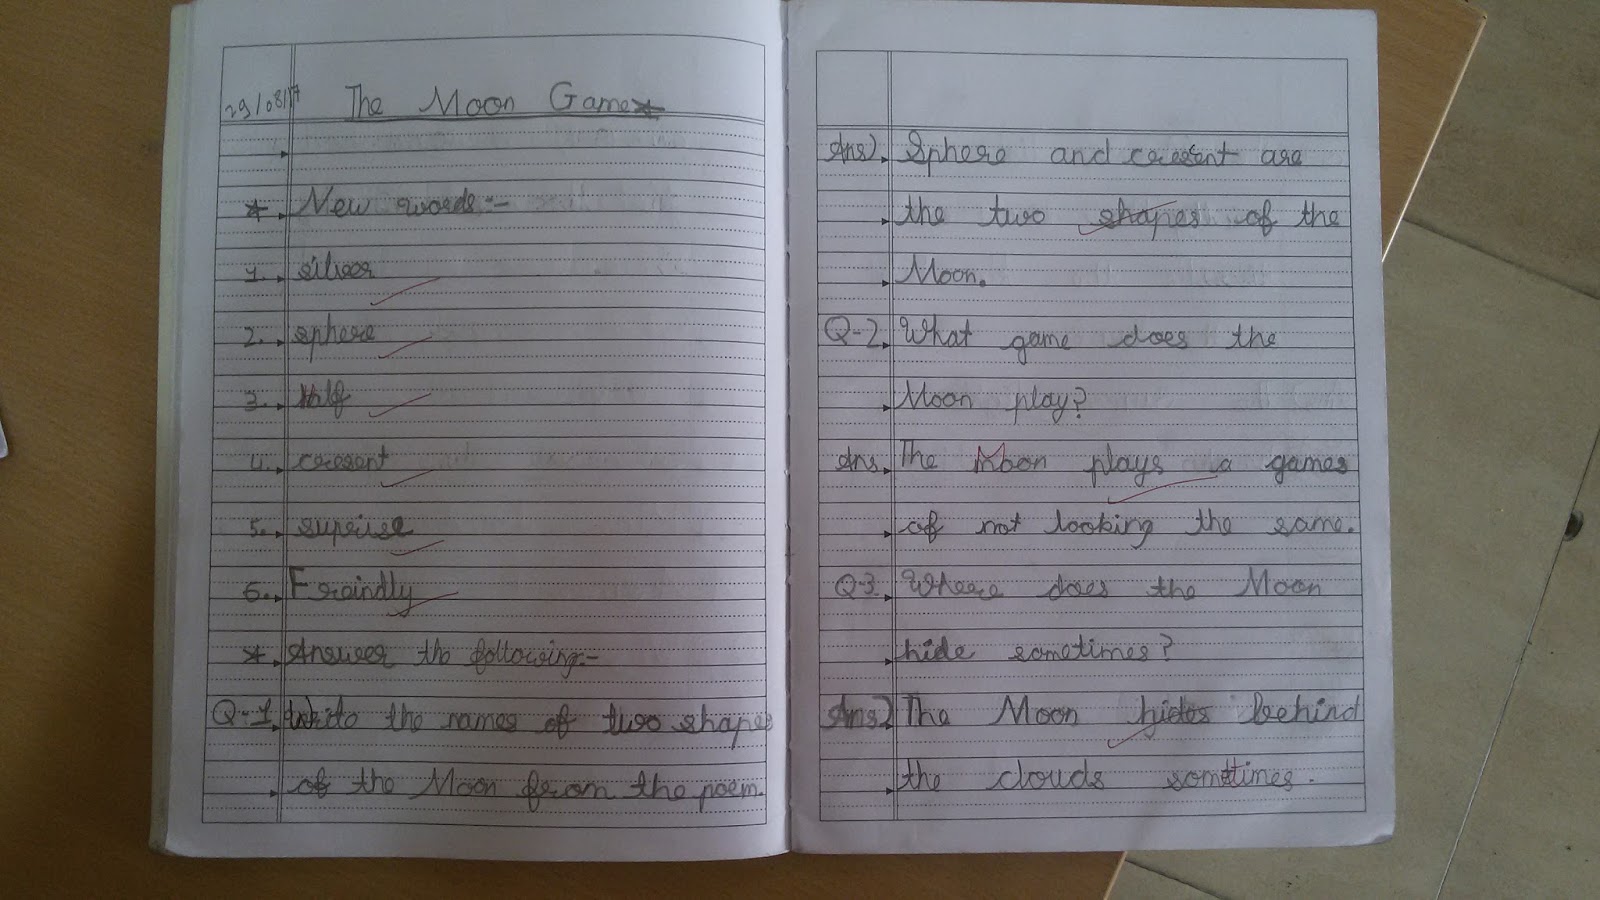 29/08/17 The Moon Game
* New words:-
1. silver
2. sphere
3. Half
4. cresent
5. suprise
6. Freindly
* Answer the following:-
Q-1. Write the names of two shapes
of the Moon from the poem.
Ans). Sphere and cresent are
the two shapes of the
Moon.
Q-2. What game does the
Moon play?
Ans. The Moon plays a games
of not looking the same.
Q-3. Where does the Moon
hide sometimes?
Ans) The Moon hides behind
the clouds sometimes.